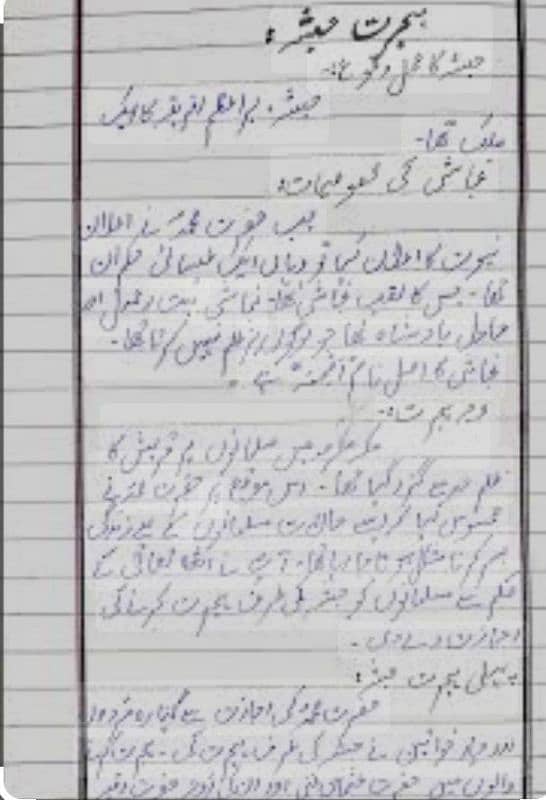 ہجرت حبشہ:
حبشہ کا محل وقوع:-
حبشہ، براعظم افریقہ کا ایک
ملک تھا۔
نجاشی کی خصوصیات:
جب حضرت محمدؐ نے اعلان
نبوت کا اعلان کیا تو وہاں ایک عیسائی حکمران
تھا۔ جس کا لقب نجاشی تھا۔ نجاشی بہت رحمدل اور
عادل بادشاہ تھا جو لوگوں پر ظلم نہیں کرتا تھا۔
نجاشی کا اصل نام اصحمہ ہے۔
وجہ ہجرت:-
مکہ مکرمہ میں مسلمانوں پر قریش کا
ظلم حد سے گزر گیا تھا۔ اس موقع پر حضرت محمدؐ نے
محسوس کیا کہ ایسے حالات مسلمانوں کے لیے زندگی
بسر کرنا مشکل ہوتا جا رہا تھا۔ آپ نے اللہ تعالیٰ کے
حکم سے مسلمانوں کو حبشہ کی طرف ہجرت کرنے کی
اجازت دے دی۔
پہلی ہجرت حبشہ:
حضرت محمدؐ کی اجازت سے گیارہ مردوں
اور چار خواتین نے حبشہ کی طرف ہجرت کی۔ ہجرت کرنے
والوں میں حضرت عثمان غنی اور ان کی زوجہ حضرت رقیہ